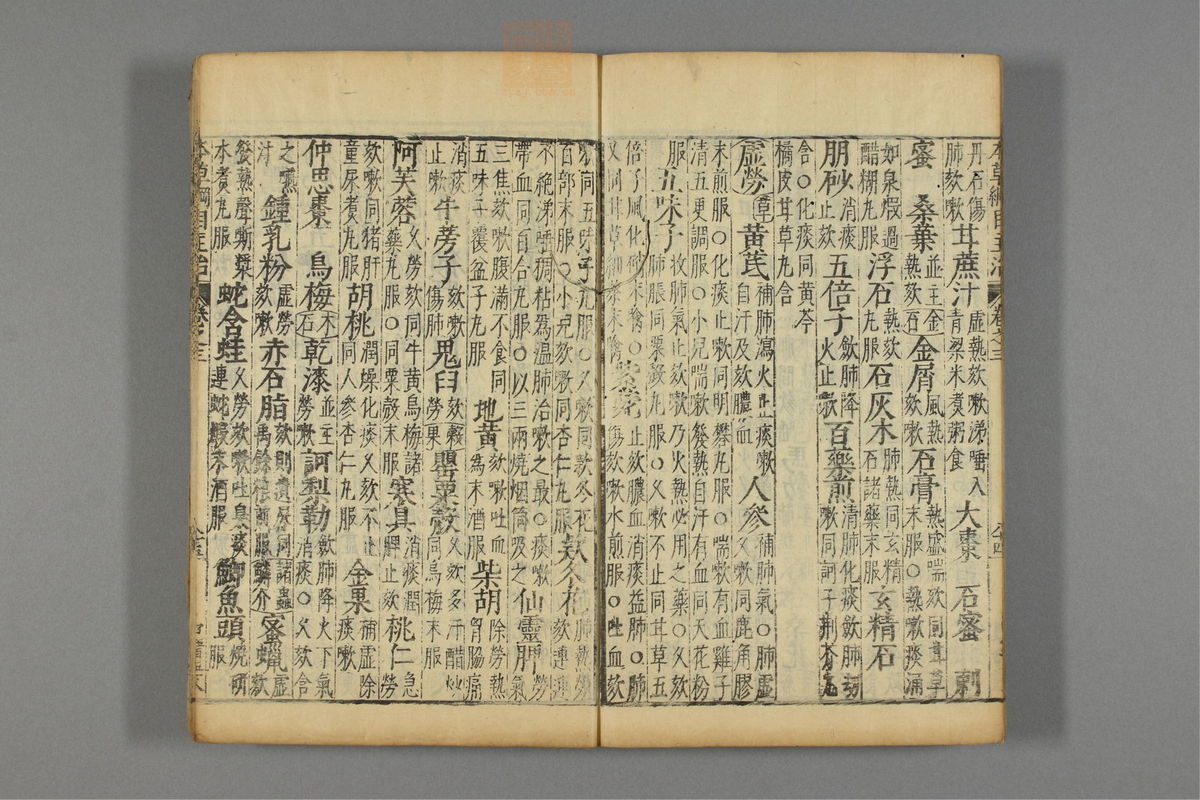 丹石傷肺欬嗽甘蔗汁虛熱欬嗽涕唾入青粱米煮粥食大棗 石蜜 刺
蜜 桑葉並主熱欬金石金屑風熱欬嗽石膏熱盛喘欬同甘草末服○熱嗽痰涌
如泉煅過醋糊丸服浮石熱欬丸服石灰木肺熱同玄精石諸藥末服玄精石
朋砂消痰止欬五倍子斂肺降火止嗽百藥煎清肺化痰斂肺劫嗽同訶子荊芥丸
含○化痰同黃芩橘皮甘草丸含
虛勞草黃芪補肺瀉火止痰嗽自汗及欬膿血人參補肺氣○肺虛久嗽同鹿角膠
末煎服○化痰止嗽同明礬丸服○喘嗽有血雞子清五更調服○小兒喘嗽發熱自汗有血同天花粉
服五味子收肺氣止欬嗽乃火熱必用之藥○久欬肺脹同粟殼丸服○久嗽不止同甘草五
倍子風化硝末噙○又同甘草細茶末噙紫菀止欬膿血消痰益肺○肺傷欬嗽水煎服○吐血欬
嗽同五味子丸服○久嗽同款冬花百部末服○小兒欬嗽同杏仁丸服款冬花肺熱勞欬連連
不絕涕唾稠粘為溫肺治嗽之最○痰嗽帶血同百合丸服○以三兩燒烟筒吸之仙靈脾勞氣
三焦欬嗽腹滿不食同五味子覆盆子丸服地黃欬嗽吐血為末酒服柴胡除勞熱胃脇痛
消痰止嗽牛蒡子欬嗽傷肺鬼臼欬嗽勞果罌粟殼久欬多汗醋炒同烏梅末服
阿芙蓉久勞欬同牛黃烏梅諸藥丸服○同粟殼末服寒具消痰潤肺止欬桃仁急勞
欬嗽同猪肝童尿煮丸服胡桃潤燥化痰久欬不止同人參杏仁丸服金果補虛除痰嗽
仲思棗 烏梅木石乾漆並主勞嗽訶梨勒斂肺降火下氣消痰○久欬含
之嚥汁鍾乳粉虛勞欬嗽赤石脂欬則遺屎同禹餘糧煎服諸蟲鱗介蜜蠟虛欬
發熱聲嘶漿水煮丸服蛇含蛙久勞欬嗽吐臭痰連蛇煅末酒服鯽魚頭燒研服
本草綱目主治 卷之三